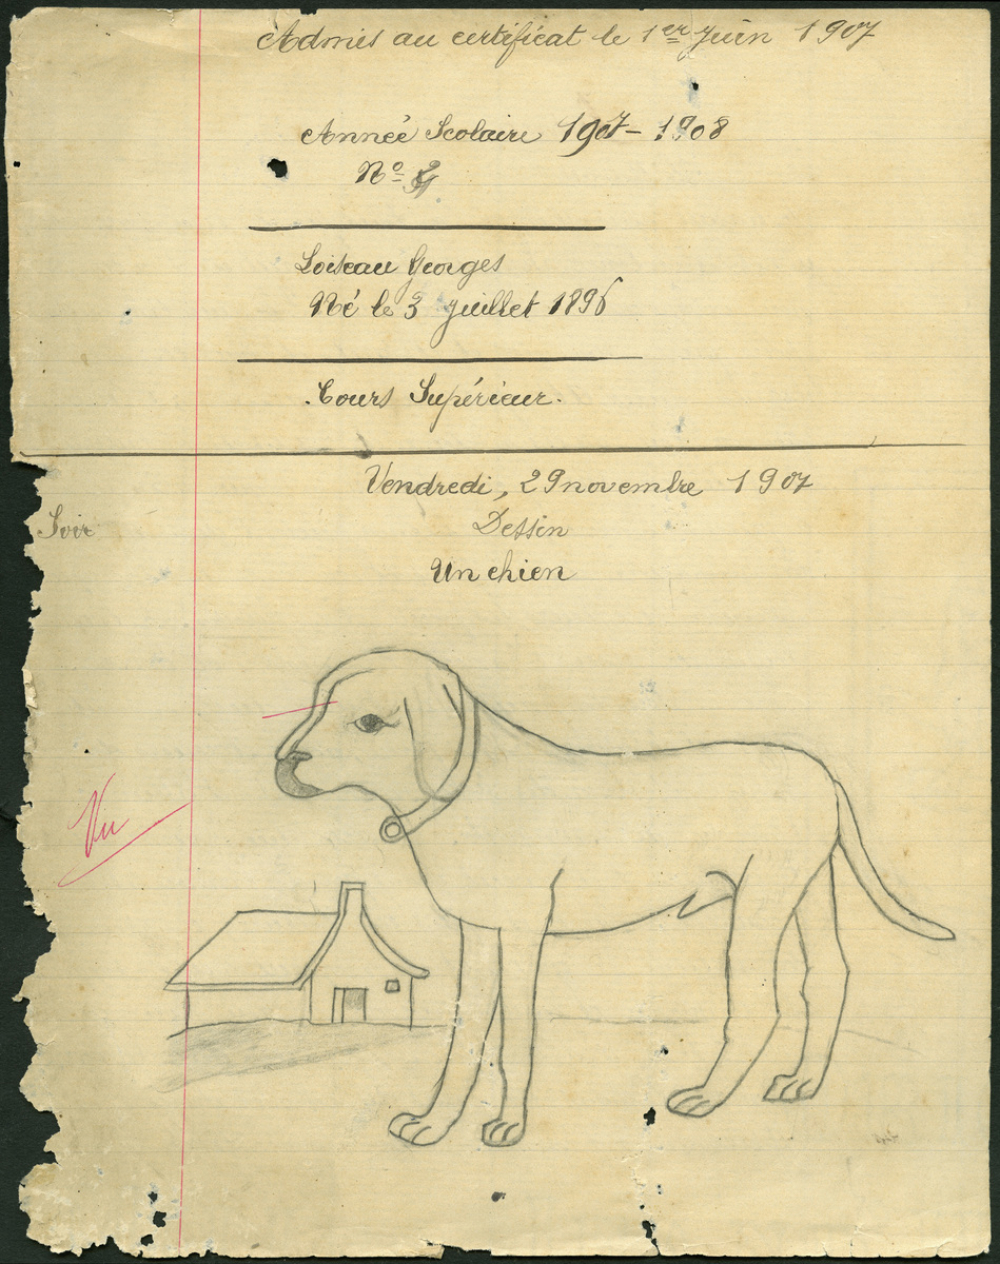 Admis au certificat le 1er Juin 1907
Année Scolaire 1907-1908
No
Loiseau Georges
Né le 3 juillet 1896
Cours Supérieur.
Vendredi, 29 novembre 1907
Soir
Dessin
Un chien
Vu